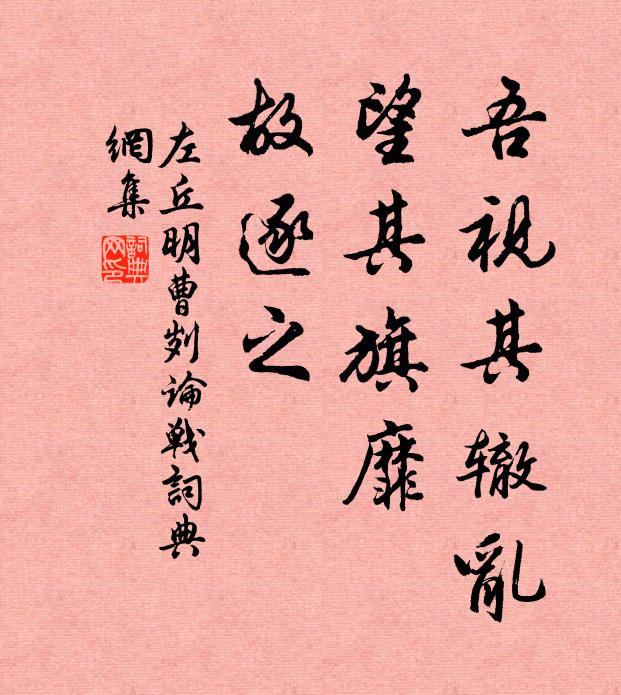 吾视其辙亂
望其旗靡
故逐之
左丘明曹刿論戰詞典
網集
詞典
网印